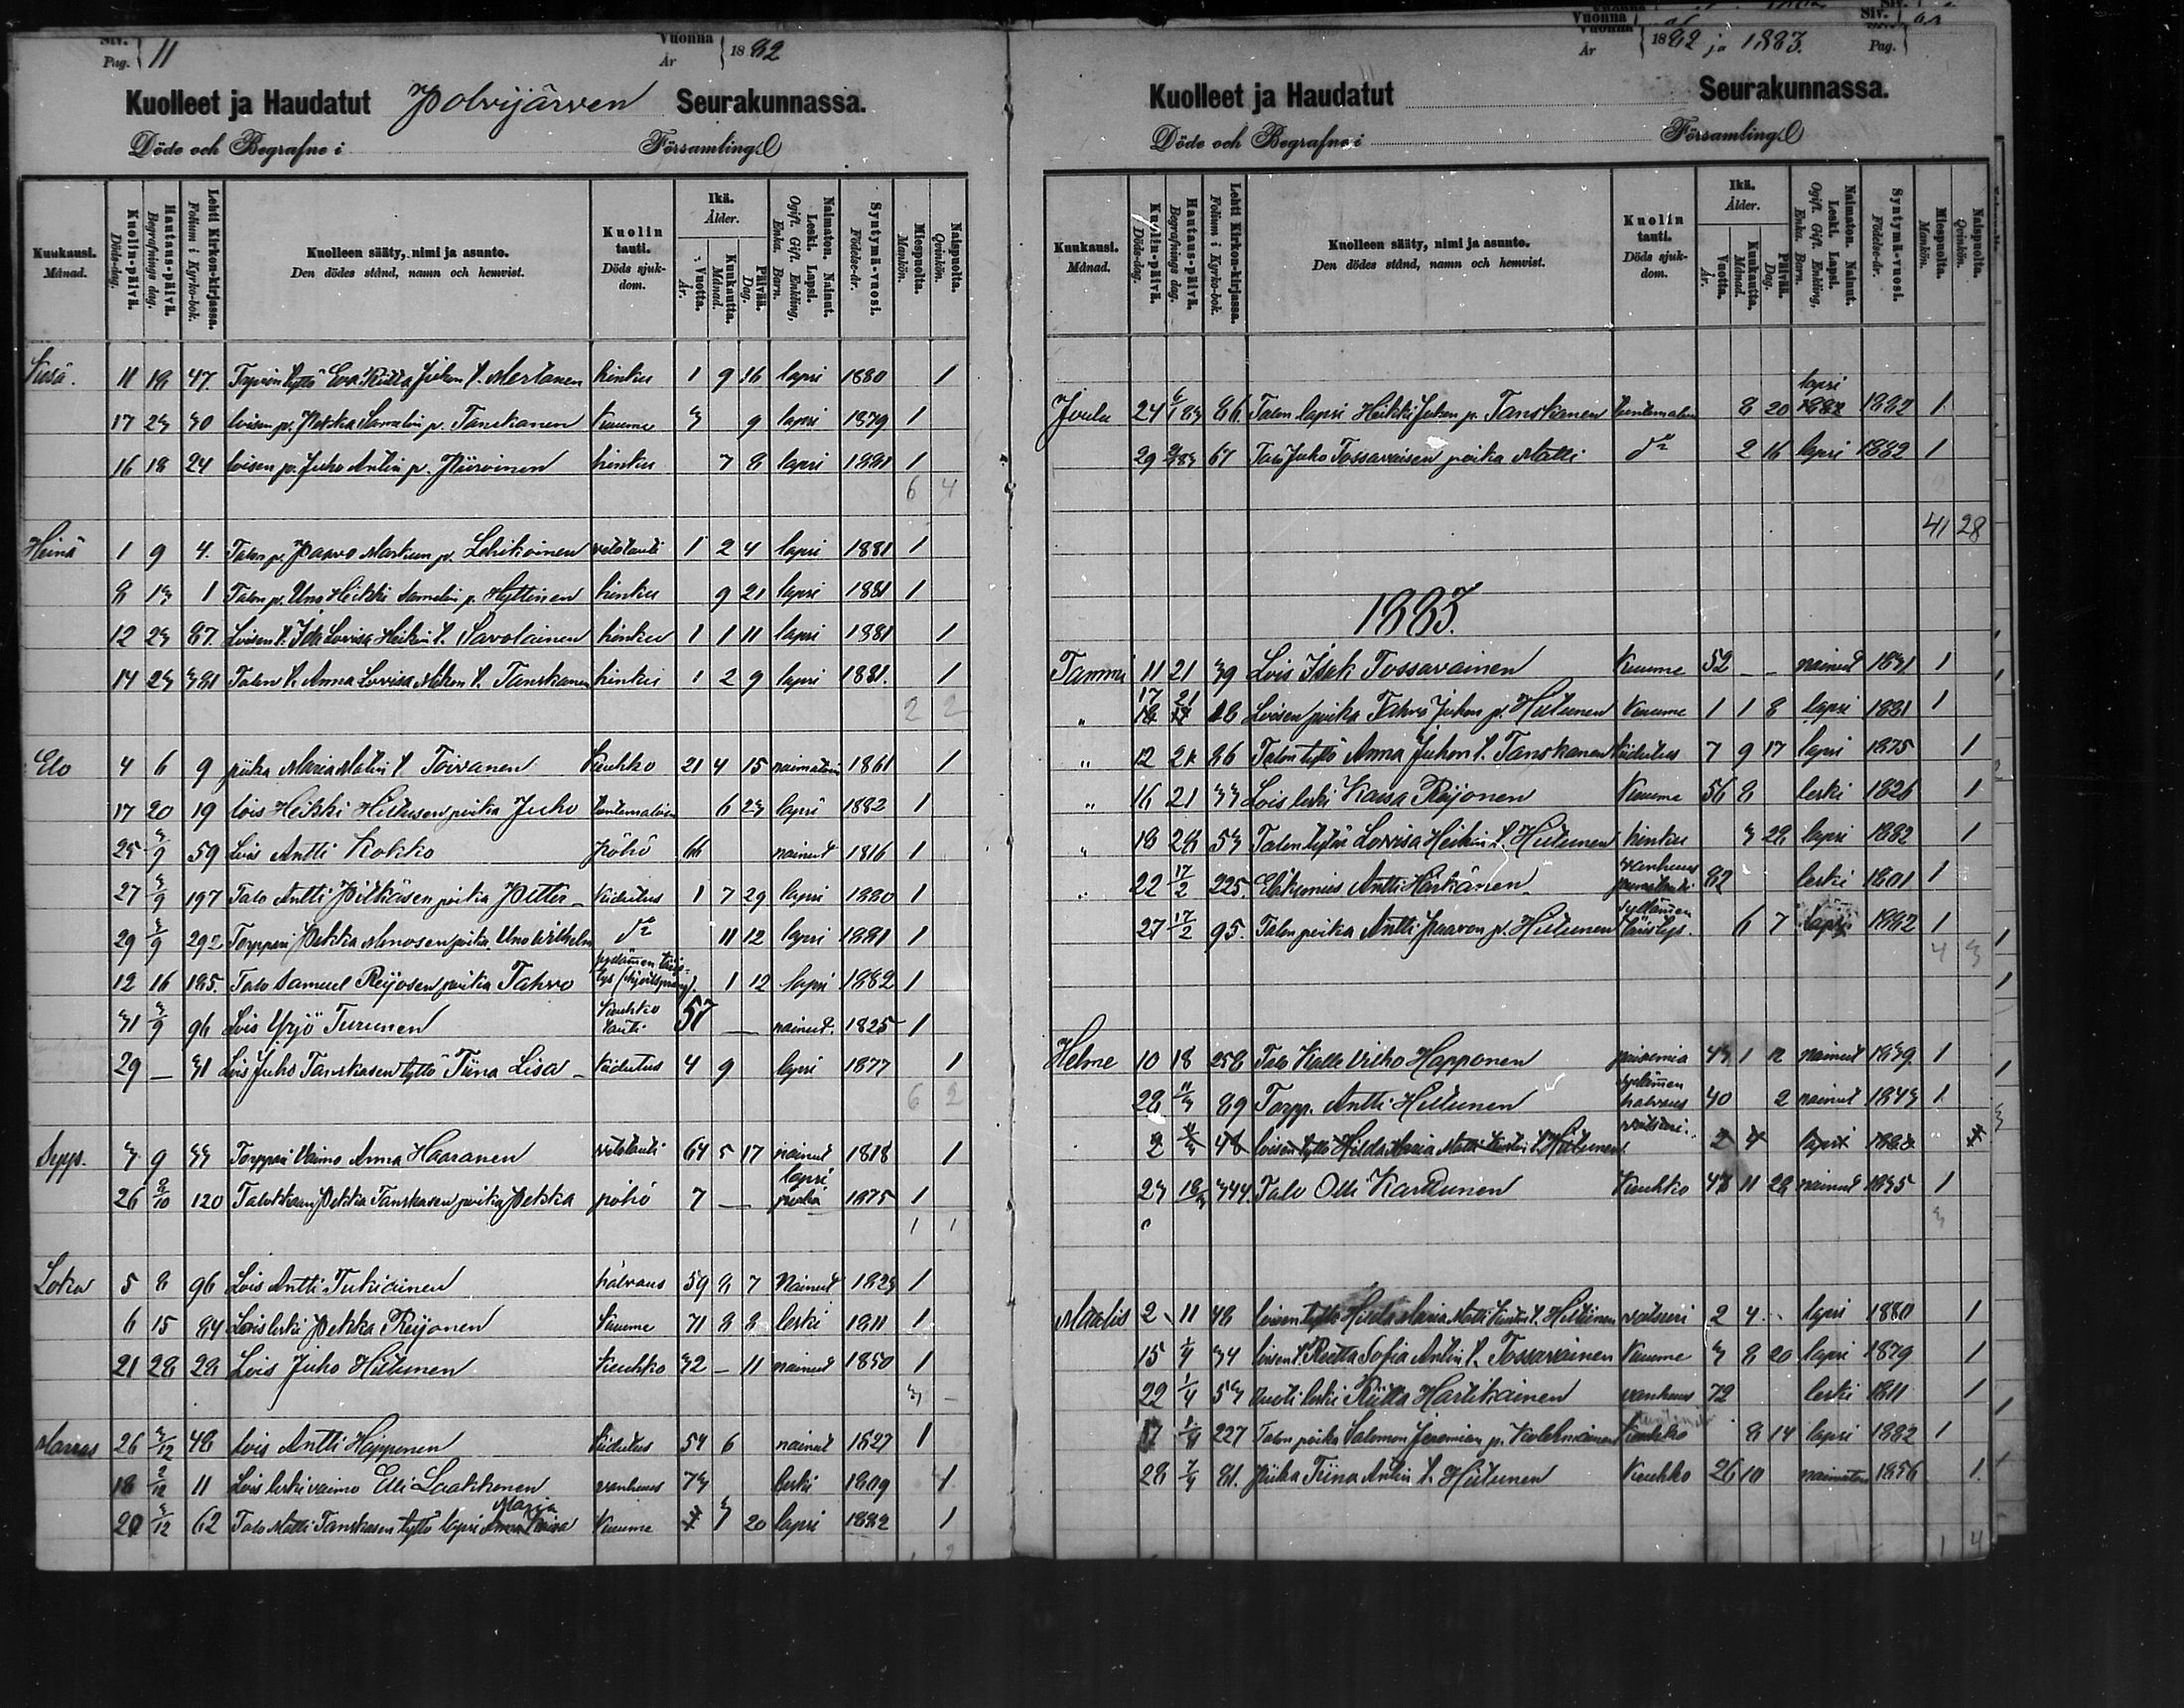 Siv.
Pag. 11
Vuonna
År 1882
Kuolleet ja Haudatut Polvijärven Seurakunnassa.
Döde och Begrafne i Församling.
Kuukausi. Månad.
Kuolin-päivä. Döds-dag.
Hautaus-päivä. Begrafnings dag.
Lehti Kirkon-kirjassa. Folium i Kyrko-bok.
Kuolleen sääty, nimi ja asunto. Den dödes stånd, namn och hemvist.
Kuolin tauti. Döds sjukdom.
Ikä. Ålder.
Vuotta. År.
Kuukautta. Månad.
Päivää. Dag.
Naimaton. Nainut. Leski. Lapsi. Ogift. Gift. Enkling, Enka. Barn.
Syntymä-vuosi. Födelse-år.
Miespuolta. Mankön.
Naispuolta. Qvinkön.
Kesä. 11 18 47 tyttö Eva Riitta Juhon t. Mertanen hinku 1 9 16 lapsi 1880 1
17 23 30 loisen p. Pekka Samulin p. Tanskanen Kuume 3 9 lapsi 1879 1
16 18 24 loisen p. Juho Antin p. Piiroinen hinku 7 8 lapsi 1881 1
6 4
Heinä 1 9 4. Talon p. Paavo Markun p. Lehikoinen vetotauti 1 2 4 lapsi 1881 1
8 13 1 Talon p. Uno Heikki Samulin p. Hyttinen hinku 9 21 lapsi 1881 1
12 23 87. Loisen t. Ida Lovisa Heikin t. Savolainen hinku 1 1 11 lapsi 1881 1
14 23 381 Talon t. Anna Lovisa t. Tanskanen hinku 1 2 9 lapsi 1881. 1
2 2
Elo 4 6 9 piika Maria Matin t Toivanen Keuhko 21 4 15 naimatoin 1861 1
17 20 19 lois Heikki Hiltusen poika Juho tuntematoin 6 23 lapsi 1882 1
25 3/9 59 Lois Antti Kokko pöhö 66 nainut 1816 1
27 3/9 197 Talo Antti Pitkäsen poika Petter Kuidutus 1 7 29 lapsi 1880 1
29 3/9 292 Torppari Pekka poika Uno Wilhelm do 11 12 lapsi 1881 1
12 16 185. Talo Samuel Reijosen poika Tahvo sydämen 1 12 lapsi 1882 1
31 3/9 96 Lois Yrjö Turunen Keuhko tauti 57 — nainut. 1825 1
29 — 31 Lois Juho Tanskasen tyttö Tiina Lisa Kuidutus 4 9 lapsi 1877 1
6 2
Syys. 3 9 33 Torppari Vaimo Anna Haaranen vetotauti 64 5 17 nainut 1818 1
26 8/10 120 Pekka Tanskasen poika Pekka pöhö 7 — lapsi poika 1875 1
1 1
Loka 5 8 96 Lois Antti Tukiainen halvaus 59 8 7 Nainut 1823 1
6 15 84 Lois leski Pekka Reijonen Kuume 71 8 8 leski 1811 1
21 28 28 Lois Juho Hiltunen Keuhko 32 — 11 nainut 1850 1
3 —
Marras 26 3/12 48 lois Antti Happonen Kuidutus 54 6 nainut 1827 1
18 2/12 11 Lois leski vaimo Elli Laakkonen vanhuus 73 leski 1809 1
20 3/12 62 Talo Matti Tanskasen tyttö lapsi Anna Maria Kaisa Kuume 3 20 lapsi 1882 1
Vuonna
År 1882 ja 1883.
Siv.
Pag.
Kuolleet ja Haudatut Seurakunnassa.
Döde och Begrafne i Församling.
Kuukausi. Månad.
Kuolin-päivä. Döds-dag.
Hautaus-päivä. Begrafnings dag.
Lehti Kirkon-kirjassa. Folium i Kyrko-bok.
Kuolleen sääty, nimi ja asunto. Den dödes stånd, namn och hemvist.
Kuolin tauti. Döds sjukdom.
Ikä. Ålder.
Vuotta. År.
Kuukautta. Månad.
Päivää. Dag.
Naimaton. Nainut. Leski. Lapsi. Ogift. Gift. Enkling, Enka. Barn.
Syntymä-vuosi. Födelse-år.
Miespuolta. Mankön.
Naispuolta. Qvinkön.
Joulu 24 6/1 83 86. Talon lapsi Heikki Juhon p. Tanskanen tuntematoin 8 20 lapsi 1882 1882 1
29 83 67 Juho Tossavaisen poika Matti do 2 16 lapsi 1882 1
41 28
1883.
Tammi 11 21 39 Lois Isak Tossavainen Kuume 52 — — nainut 1831 1
" 17 21 18 Loisen poika Tahvo Juhon p. Hiltunen Kuume 1 1 8 lapsi 1881 1
" 12 21 86 Talon tyttö Anna Juhon t. Tanskanen Kuidutus 7 9 17 lapsi 1875 1
" 16 21 33 Lois leski Kaisa Reijonen Kuume 56 8 leski 1826 1
" 18 28 53 Talon tytär Lovisa Heikin t. Hiltunen hinku 3 22 lapsi 1882 1
" 22 17/2 225. Antti Härkänen vanhuus 82 leski 1801 1
27 17/2 95. Talon poika Antti Paavon p. Hiltunen sydämen 6 7 lapsi 1882 1
4 3
Helme 10 18 258 Talo Kalle Vilho Happonen 43 1 12 nainut 1839 1
28 11/3 89 Torpp. Antti Hiltunen sydämen halvaus 40 2 nainut 1843 1
2 11/3 48 loisen tyttö Hilda Maria Matti t. Hiltunen 2 4 lapsi
23 18/3 344. Talo Olli Karttunen Keuhko 47 11 28 nainut 1835 1
3
Maalis 2 11 48 loisen tyttö Hilda Maria Matti t. Hiltunen 2 4 lapsi 1880 1
15 1/4 34 loisen t. Reetta Sofia Antin t. Tossavainen Kuume 3 8 20 lapsi 1879 1
22 1/4 53 leski Riitta Hartikainen vanhuus 72 leski 1811 1
17 1/4 227 Talon poika Salomon Jeremian p. Kolehmainen Keuhko 8 14 lapsi 1882 1
28 7/4 81. Piika Tiina Antin t. Hiltunen Keuhko 26 10 naimaton 1856 1.
1 4